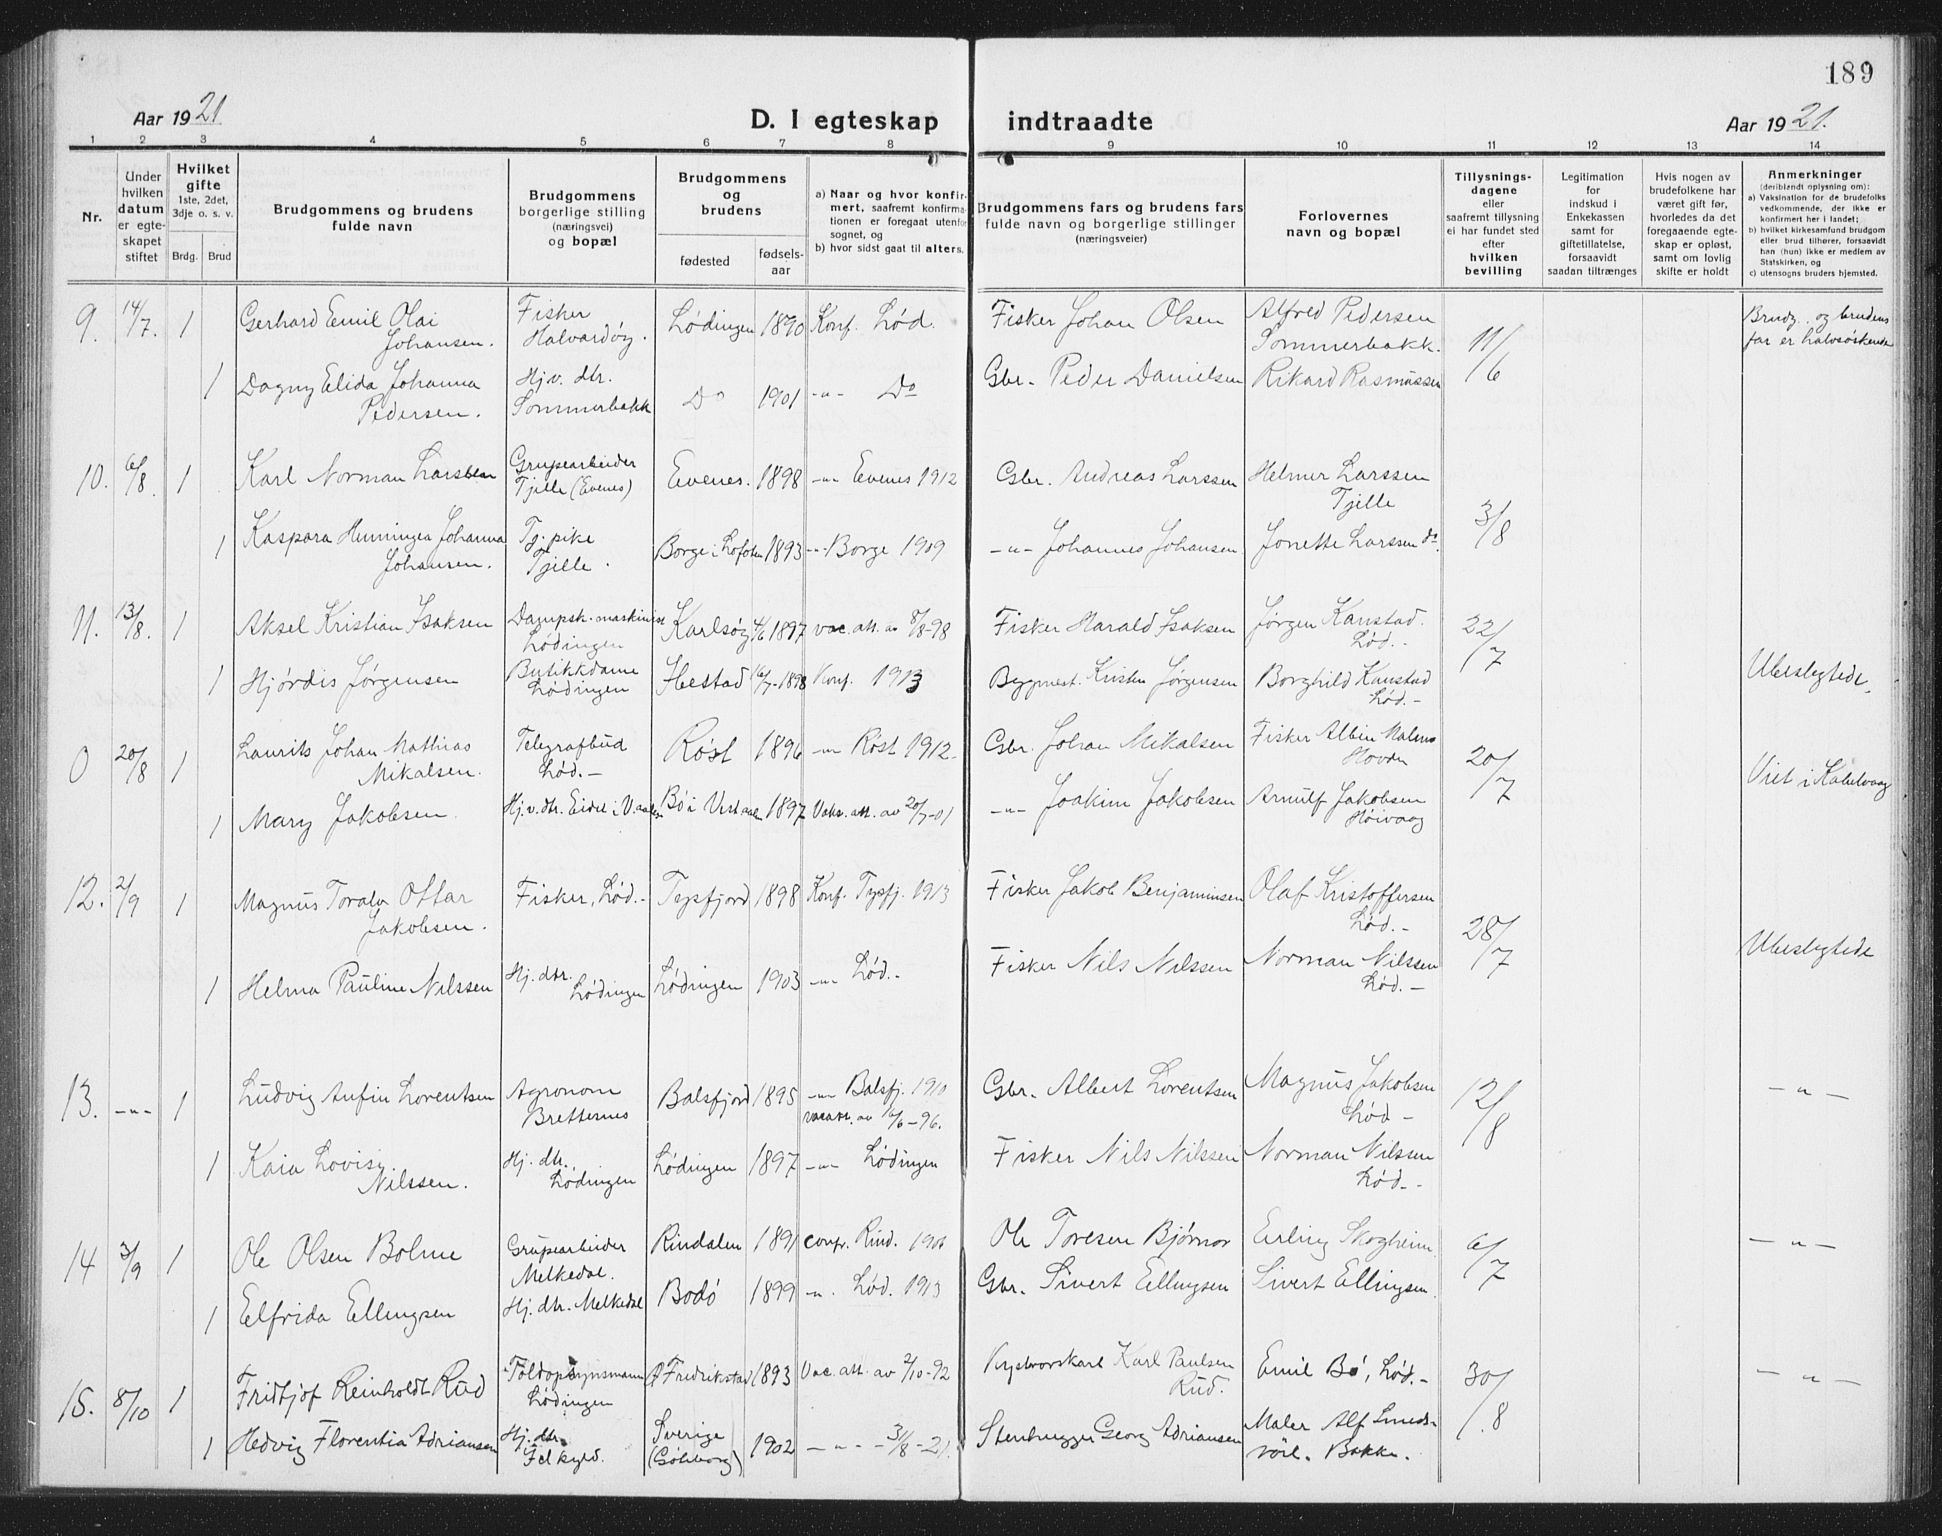 189
Aar 1921
D. I egteskap indtraadte
Aar 1921.
1 2 3 4 5 6 7 8 9 10 11 12 13 14
Nr.
Under hvilken datum er egteskapet stiftet
Hvilket gifte
1ste, 2det, 3dje o. s. v.
Brdg. Brud
Brudgommens og brudens fulde navn
Brudgommens borgerlige stilling (næringsvei) og bopæl
Brudgommens og brudens
fødested
fødsels-aar
a) Naar og hvor konfirmert, saafremt konfirmationen er foregaat utenfor sognet, og
b) hvor sidst gaat til alters.
Brudgommens fars og brudens fars fulde navn og borgerlige stillinger (næringsveier)
Forlovernes navn og bopæl
Tillysningsdagene eller saafremt tillysning ei har fundet sted efter hvilken bevilling
Legitimation for indskud i Enkekassen samt for giftetillatelse, forsaavidt saadan tiltrænges
Hvis nogen av brudefolkene har været gift før, hvorledes da det foregaaende egteskap er opløst, samt om lovlig skifte er holdt
Anmerkninger
(deriblandt oplysning om):
a) Vaksination for de brudefolks vedkommende, der ikke er konfirmert her i landet;
b) hvilket kirkesamfund brudgom eller brud tilhører, forsaavidt han (hun) ikke er medlem av Statskirken, og
c) utensogns bruders hjemsted.
9. 14/7. 1 Gerhard Emil Olai Johansen. Fisker Halvardöy. Lödingen 1890 Konf. Löd. Fisker Johan Olsen Alfred Pedersen Sommerbakk. 11/6 Brudg. og brudens far er halvsöskende
1 Dagny Elida Johanna Pedersen. Hjv. dtr. Sommerbakk Do 1901 -"- Do Gbr. Peder Danielsen Rikard Rasmussen
10. 6/8. 1 Karl Norman Larssen Grupearbeider Tjelle (Evenes) Evenes. 1898 -"- Evenes 1912 Gbr. Andreas Larssen Helmer Larssen Tjelle 3/8
1 Kaspara Henningea Johanna Johansen. Tj. pike Tjelle. Borge i Lofoten 1893 -"- Borge 1909 -"- Johannes Johansen Jonette Larssen do.
11. 13/8. 1 Aksel Kristian Isaksen Dampsk. maskinist Lödingen Karlsöy 4/6 1897 vac. att. av 8/8-98 Fisker Harald Isaksen Jörgen Kanstad. Löd.- 22/7
1 Hjördis Jörgensen Butikkdame Lödingen Hestad 16/7-1898 Konf. 1913 Bygmest. Kristen Jörgensen Borghild Kanstad Löd.- Ubeslegtede
0 20/8 1 Laurits Johan Mathias Mikalsen. Telegrafbud Löd.- Röst 1896 -"- Röst 1912- Gbr. Johan Mikalsen Fisker Albin Hovden 20/7 Viet i Kabelvaag
1 Mary Jakobsen Hj. v. dtr. Eidet i V.aalen Bö i Vesteraalen 1897 Vaks. att. av 20/7-01 -"- Joakim Jakobsen Arnulf Jakobsen Höivaag
12. 2/9 1 Magnus Toralv Ottar Jakobsen. Fisker, Löd.- Tysfjord 1898 Konf. Tysfj. 1913 Fisker Jakob Benjaminsen Olaf Kristoffersen Löd.- 28/7 Ubeslegtede
1 Helma Pauline Nilssen Hj. dtr. Lödingen Lödingen 1903 -"- Löd.- Fisker Nils Nilssen Norman Nilssen Löd.-
13. -"- 1 Ludvig Anfin Lorentsen Agronom Bretternes Balsfjord 1895 -"- Balsfj. 1910 vacatt. av 16/6-96. Gbr. Albert Lorentsen Magnus Jakobsen Löd- 12/8 -"-
1 Kaia Lovise Nilssen. Hj. dtr. Lödingen Lödingen 1897 -"- Lödingen Fisker Nils Nilssen Norman Nilssen Löd.-
14 3/9 1 Ole Olsen Bolme Grupearbeider Melkedal. Rindalen 1891 confr. Rind. Ole Toresen Bjørnor Erling Skogheim. 6/7 -"-
1 Elfrida Ellingsen Hj. dtr. Melkedal Bodö 1899 -"- Löd. 1913 Gbr. Sivert Ellingsen Sivert Ellingsen.
15. 8/10 1 Fridtjof Reinholdt Rud Toldopsynsmann Lödingen Fredrikstad 1893 Vac. att. av 2/10-92 Karl Paulsen Rud. Emil Bö, Löd.- 30/8 -"-
1 Hedvig Florentia Adriansen Hj. dtr. Sverige (Göteborg) 1902 -"- - 3/8-21. Stenhugger Georg Adriansen Maler Alf Bakke.